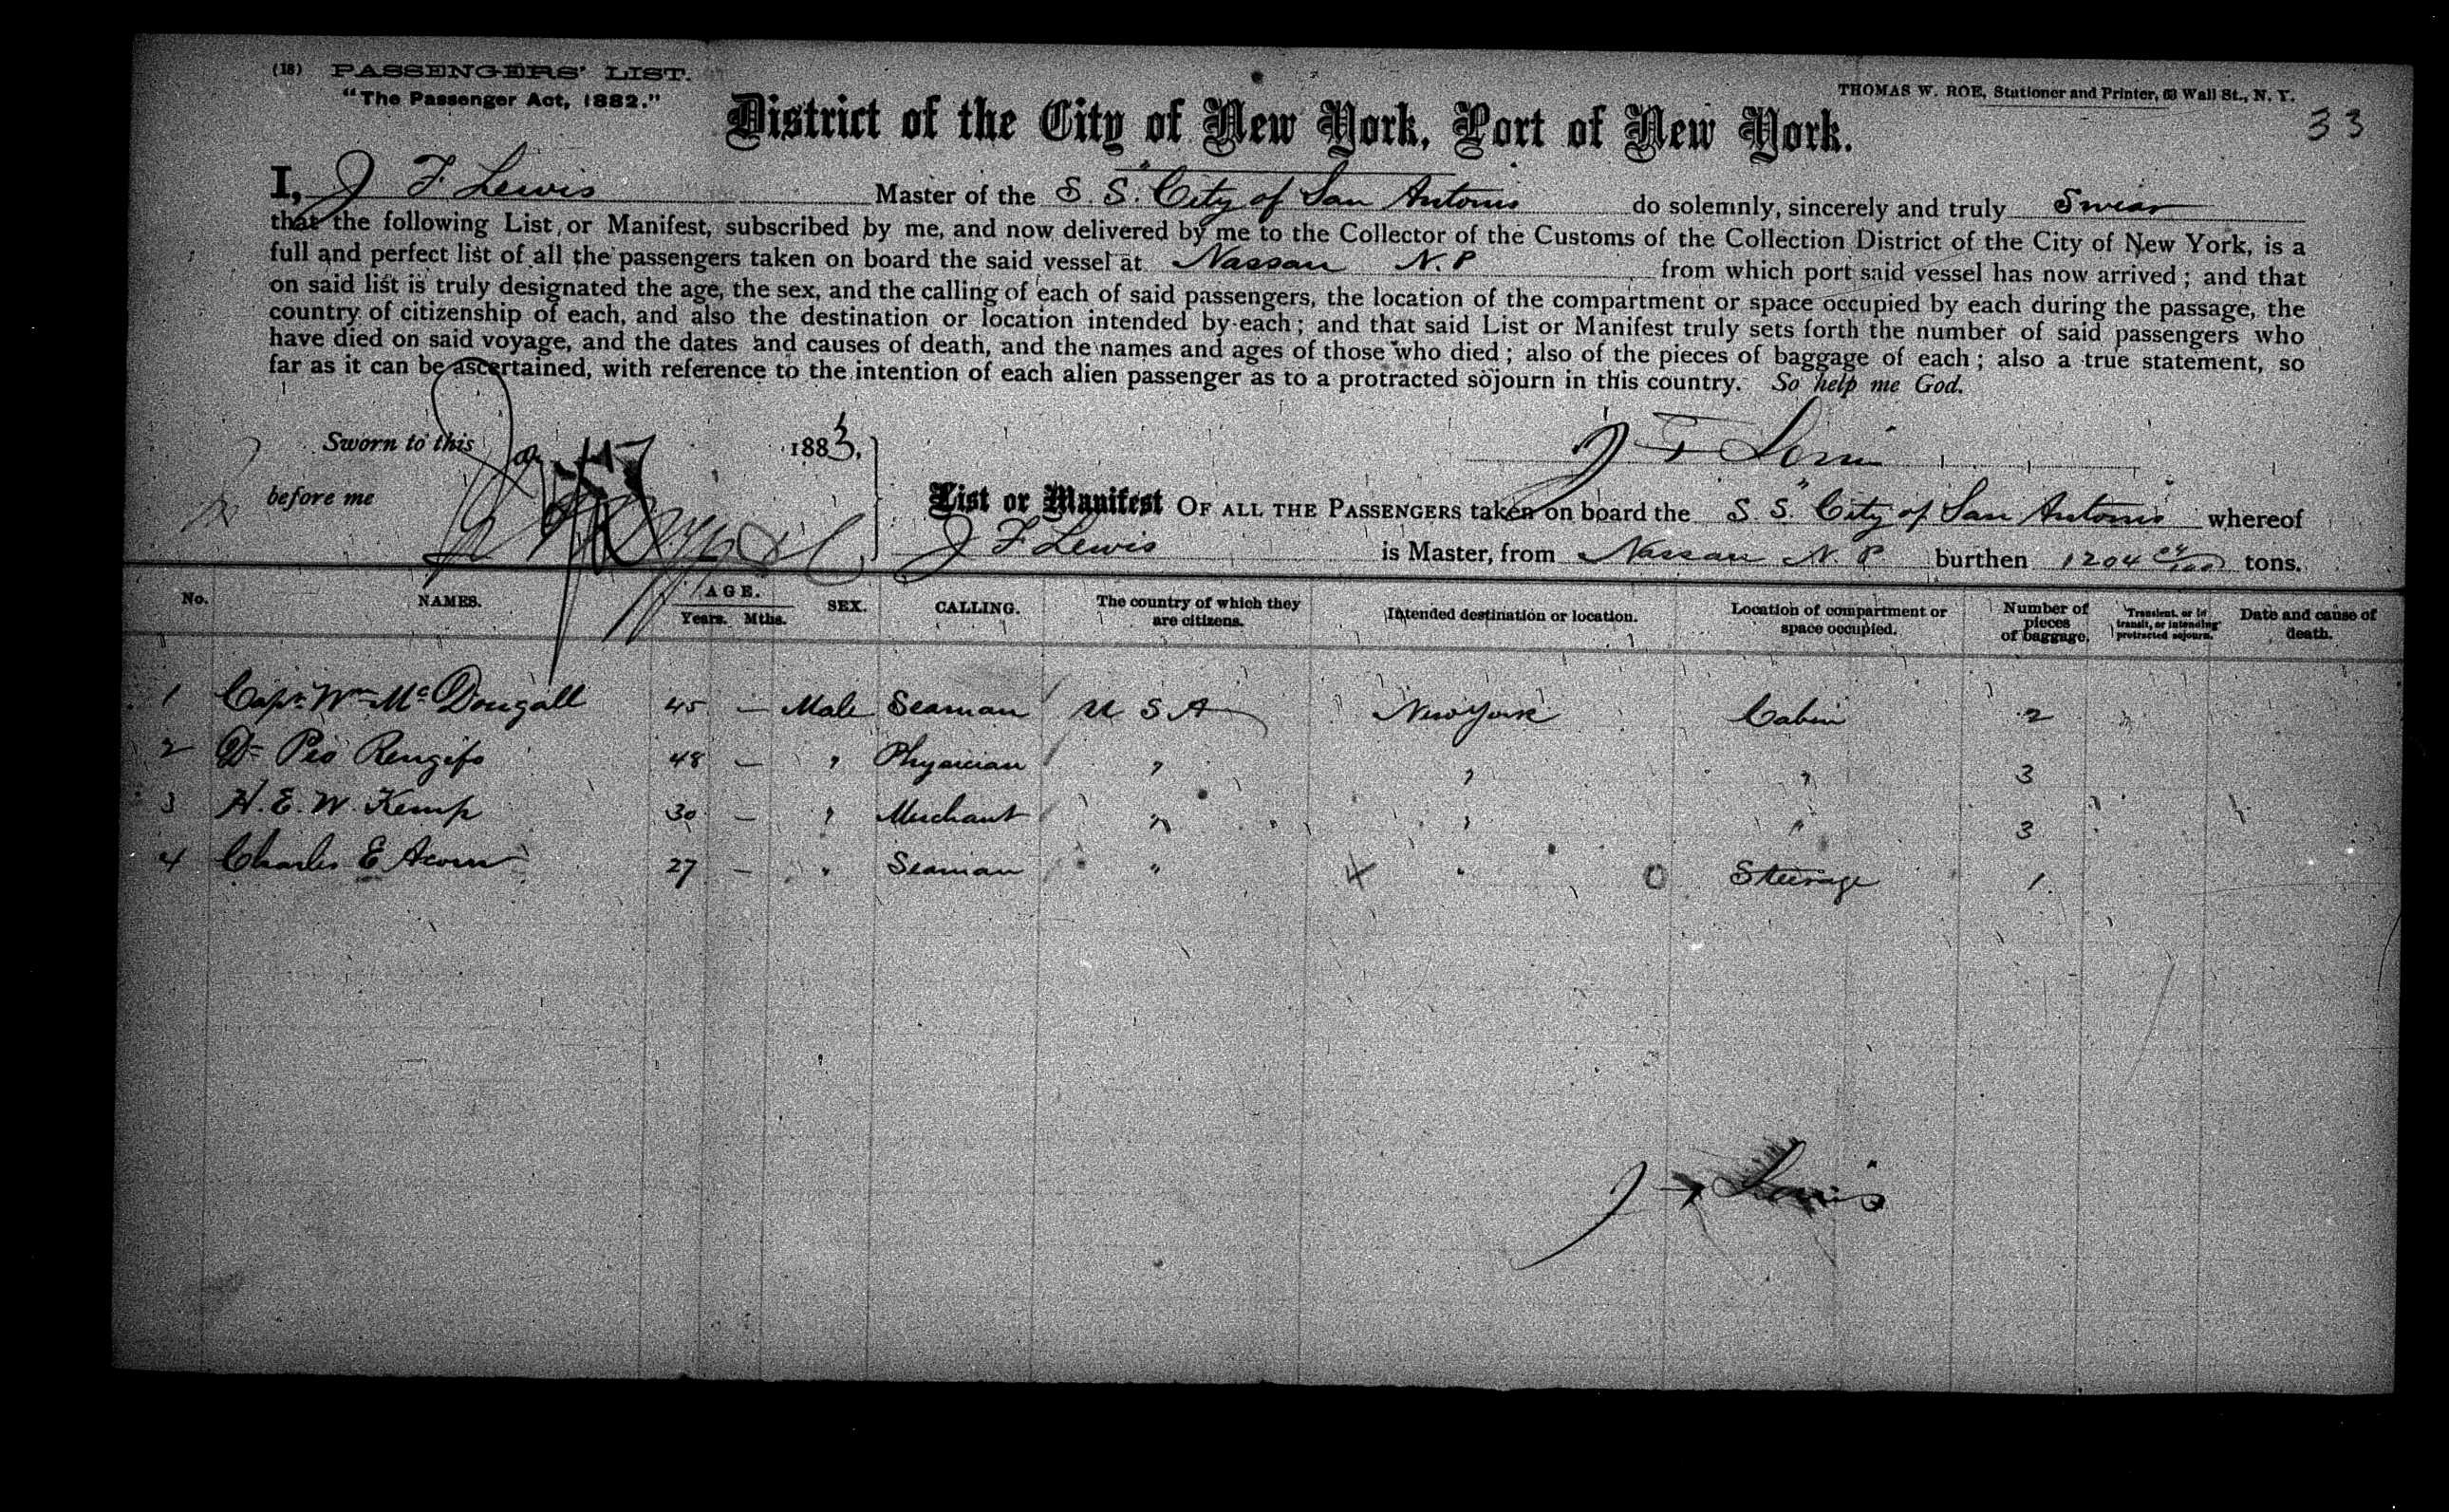 (18) PASSENGERS' LIST.
"The Passenger Act, 1882."
THOMAS W. ROE, Stationer and Printer, 63 Wall St., N. Y.
33
District of the City of New York, Port of New York.
I, J F. Lewis Master of the S. S. "City of San Antonio" do solemnly, sincerely and truly Swear
that the following List or Manifest, subscribed by me, and now delivered by me to the Collector of the Customs of the Collection District of the City of New York, is a
full and perfect list of all the passengers taken on board the said vessel at Nassau N. P from which port said vessel has now arrived; and that
on said list is truly designated the age, the sex, and the calling of each of said passengers, the location of the compartment or space occupied by each during the passage, the
country of citizenship of each, and also the destination or location intended by each; and that said List or Manifest truly sets forth the number of said passengers who
have died on said voyage, and the dates and causes of death, and the names and ages of those who died; also of the pieces of baggage of each; also a true statement, so
far as it can be ascertained, with reference to the intention of each alien passenger as to a protracted sojourn in this country. So help me God.
Sworn to this 1883,
J F Lewis
before me
List or Manifest OF ALL THE PASSENGERS taken on board the S. S. "City of San Antonio" whereof
J F Lewis is Master, from Nassau N. P. burthen 1204 04/100 tons.
No. NAMES. AGE. Years. Mths. SEX. CALLING. The country of which they are citizens. Intended destination or location. Location of compartment or space occupied. Number of pieces of baggage. Transient, or in transit, or intending protracted sojourn. Date and cause of death.
1 Capt. Wm McDougall 45 — Male Seaman U S A New York Cabin 2
2 Dr Pio Rengifo 48 — " Physician " " " 3
3 H. E. W. Kemp 30 — " Merchant " " " 3
4 Charles E Acorn 27 — " Seaman " " Steerage 1.
J F Lewis